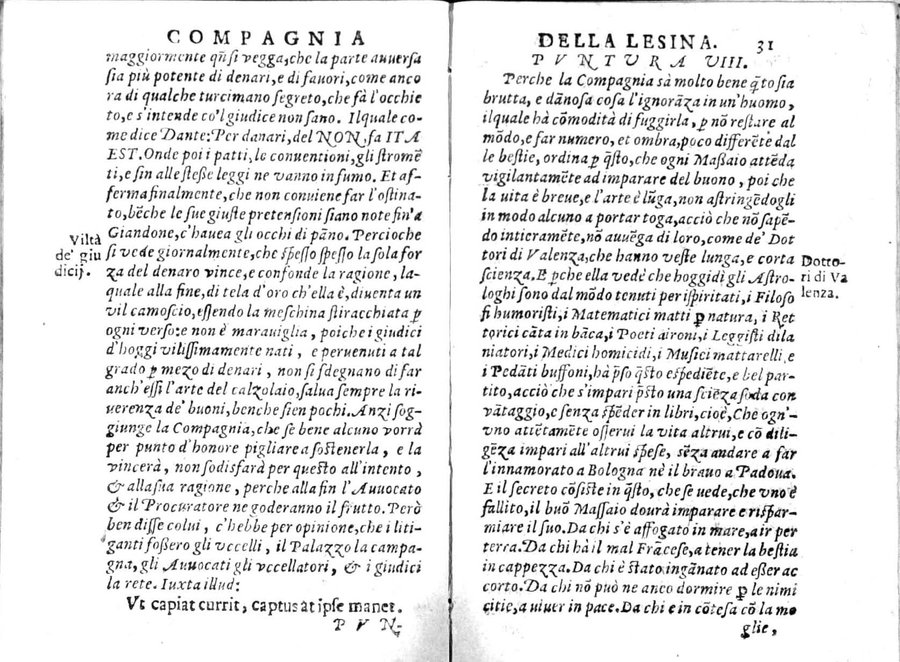 COMPAGNIA
maggiormente qñ si vegga, che la parte auuersa
sia più potente di denari, e di fauori, come anco
ra di qualche turcimano segreto, che fà l'occhie
to, e s'intende co'l giudice non sano. Il quale co-
me dice Dante: Per danari, del NON, fa ITA
EST. Onde poi i patti, le conuentioni, gli stromẽ
ti, e fin alle steße leggi ne vanno in fumo. Et af-
ferma finalmente, che non conuiene far l'ostina
to, bẽche le sue giuste pretensioni siano note fin'a
Giandone, c'hauea gli occhi di pãno. Percioche
si vede giornalmente, che speßo speßo la sola for
za del denaro vince, e confonde la ragione, la-
quale alla fine, di tela d'oro ch'ella è, diuenta un
vil camoscio, essendo la meschina stiracchiata ꝑ
ogni verso: e non è marauiglia, poiche i giudici
d'hoggi vilissimamente nati, e peruenuti a tal
grado ꝑ mezo di denari, non si sdegnano di far
anch'essi l'arte del calzolaio, salua sempre la ri-
uerenza de' buoni, benche sien pochi. Anzi sog-
giunge la Compagnia, che se bene alcuno vorrà
per punto d'honore pigliare a sostenerla, e la
vincerà, non sodisfarà per questo all'intento,
& alla sua ragione, perche alla fin l'Auuocato
& il Procuratore ne goderanno il frutto. Però
ben disse colui, c'hebbe per opinione, che i liti-
ganti foßero gli vccelli, il Palazzo la campa-
gna, gli Auuocati gli vccellatori, & i giudici
la rete. Iuxta illud:
Vt capiat currit, captus at ipse manet.
PVN-
Viltà
de' giu
dicij.
DELLA LESINA. 31
PVNTURA VIII.
Perche la Compagnia sà molto bene q̃to sia
brutta, e dãnosa cosa l'ignorãza in un'huomo,
il quale hà cõmodità di fuggirla, ꝑ nõ restare al
mõdo, e far numero, et ombra, poco differẽte dal
le bestie, ordina ꝑ q̃sto, che ogni Maßaio attẽda
vigilantamẽte ad imparare del buono, poi che
la uita è breue, e l'arte è lũga, non astringẽdogli
in modo alcuno a portar toga, acciò che nõ sapẽ-
do intieramẽte, nõ auuẽga di loro, come de' Dot
tori di Valenza, che hanno veste lunga, e corta
scienza. E ꝑche ella vedè che hoggidì gli Astro-
loghi sono dal mõdo tenuti per ispiritati, i Filoso
fi humoristi, i Matematici matti ꝑ natura, i Ret
torici cãta in bãca, i Poeti aironi, i Leggisti dila
niatori, i Medici homicidi, i Musici mattarelli, e
i Pedãti buffoni, hà p̃so q̃sto espediẽte, e bel par-
tito, acciò che s'impari p̃sto una sciẽza soda con
vãtaggio, e senza spẽder in libri, cioè, Che ogn'-
vno attẽtamẽte osserui la vita altrui, e cõ dili-
gẽza impari all'altrui spese, sẽza andare a far
l'innamorato a Bologna nè il brauo a Padoua.
E il secreto cõsiste in q̃sto, che se uede, che vno è
fallito, il buõ Massaio dourà imparare e rispar-
miare il suo. Da chi s'è affogato in mare, a ir per
terra. Da chi hà il mal Frãcese, a tener la bestia
in cappezza. Da chi è stato ingãnato ad eßer ac
corto. Da chi nõ può ne anco dormire ꝑ le nimi
citie, a uiuer in pace. Da chi e in cõtesa cõ la mo
glie,
Dotto-
ri di Va
lenza.